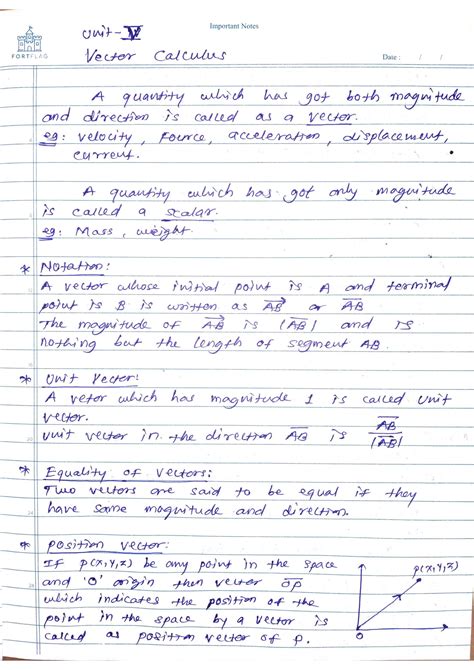 Important Notes
FORTFLAG
Unit - V
Vector Calculus
Date : / /
A quantity which has got both magnitude
and direction is called as a vector.
eg: velocity, Fource, acceleration, displacement,
current.
A quantity which has got only magnitude
is called a scalar.
eg: Mass, weight.
* Notation:
A vector whose initial point is A and terminal
point is B is written as \overrightarrow{AB} or \overline{AB}
The magnitude of \overrightarrow{AB} is |\overline{AB}| and is
nothing but the length of segment AB.
* Unit Vector:
A vetor which has magnitude 1 is called unit
vector.
unit vector in the direction \overline{AB} is \frac{\overline{AB}}{|\overline{AB}|}
* Equality of vectors:
Two vectors are said to be equal if they
have same magnitude and direction.
* Position vector:
If P(x,y,z) be any point in the space
and 'O' origin then vector \overline{OP}
which indicates the position of the
point in the space by a vector is
called as position vector of P.
P(x,y,z)
O